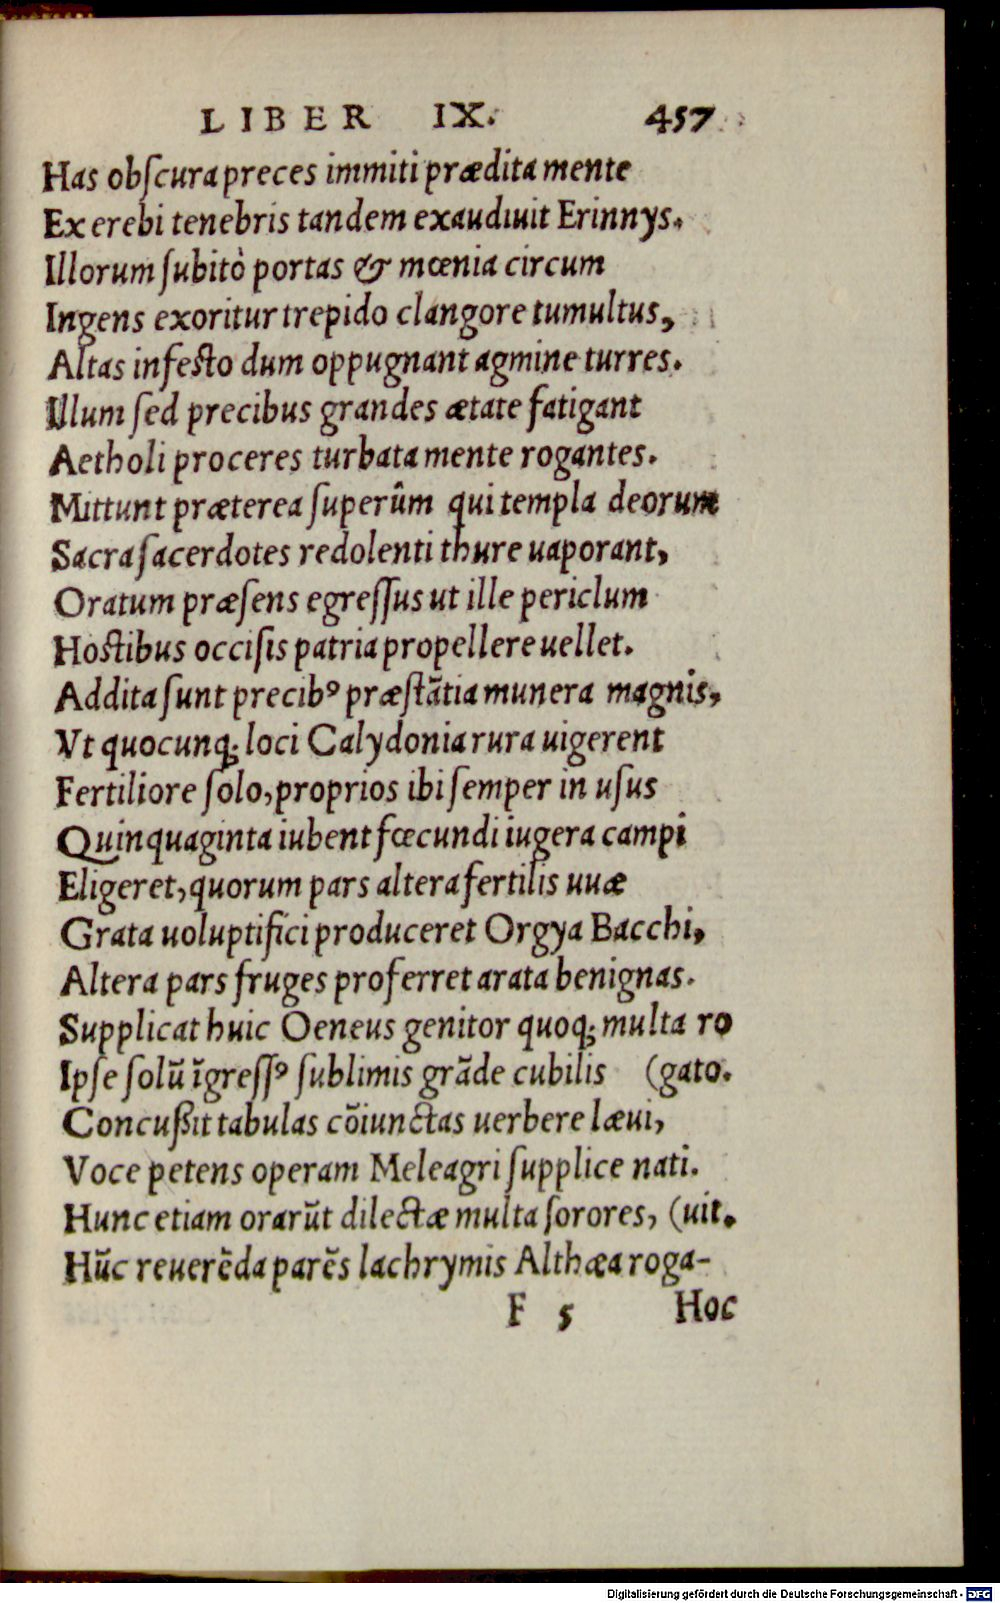 LIBER IX. 457
Has obſcura preces immiti prædita mente
Ex erebi tenebris tandem exaudiuit Erinnys.
Illorum ſubitò portas & mœnia circum
Ingens exoritur trepido clangore tumultus,
Altas infeſto dum oppugnant agmine turres.
Illum ſed precibus grandes ætate fatigant
Aetholi proceres turbata mente rogantes.
Mittunt præterea ſuperûm qui templa deorum
Sacra ſacerdotes redolenti thure uaporant,
Oratum præſens egreſſus ut ille periclum
Hoſtibus occiſis patria propellere uellet.
Addita ſunt precibꝰ præſtātia munera magnis,
Vt quocunq; loci Calydonia rura uigerent
Fertiliore ſolo, proprios ibi ſemper in uſus
Quinquaginta iubent fœcundi iugera campi
Eligeret, quorum pars altera fertilis uuæ
Grata uoluptifici produceret Orgya Bacchi,
Altera pars fruges proferret arata benignas.
Supplicat huic Oeneus genitor quoq; multa ro
Ipſe ſolū īgreſſꝰ ſublimis grāde cubilis (gato.
Concußit tabulas cōiunctas uerbere læui,
Voce petens operam Meleagri ſupplice nati.
Hunc etiam orarūt dilectæ multa ſorores, (uit.
Hūc reuerēda parēs lachrymis Althæa roga-
F 5 Hoc
Digitalisierung gefördert durch die Deutsche Forschungsgemeinschaft - DFG